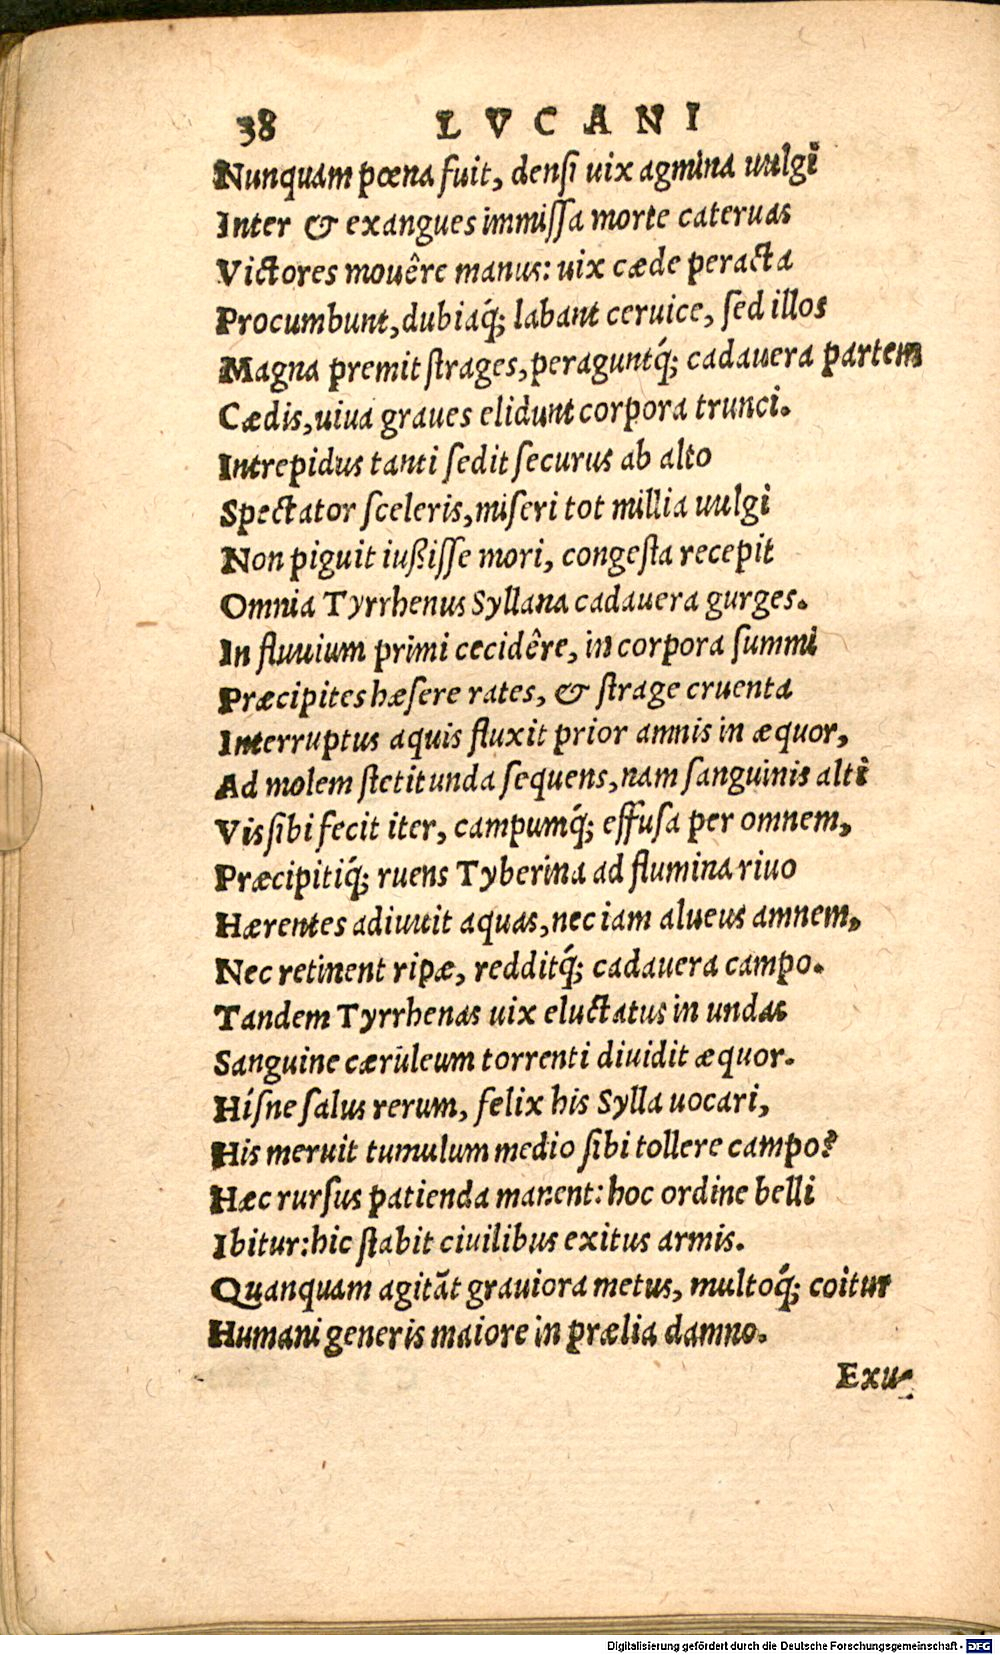 38 LVCANI
Nunquam pœna fuit, denſi uix agmina uulgi
Inter & exangues immiſſa morte cateruas
Victores mouêre manus: uix cæde peracta
Procumbunt, dubiaq́; labant ceruice, ſed illos
Magna premit ſtrages, peraguntq́; cadauera partem
Cædis, uiua graues elidunt corpora trunci.
Intrepidus tanti ſedit ſecurus ab alto
Spectator ſceleris, miſeri tot millia uulgi
Non piguit iußiſſe mori, congeſta recepit
Omnia Tyrrhenus Syllana cadauera gurges.
In fluuium primi cecidêre, in corpora ſummi
Præcipites hæſere rates, & ſtrage cruenta
Interruptus aquis fluxit prior amnis in æquor,
Ad molem ſtetit unda ſequens, nam ſanguinis alti
Vis ſibi fecit iter, campumq́; effuſa per omnem,
Præcipitiq́; ruens Tyberina ad flumina riuo
Hærentes adiuuit aquas, nec iam alueus amnem,
Nec retinent ripæ, redditq́; cadauera campo.
Tandem Tyrrhenas uix eluctatus in undas
Sanguine cæruleum torrenti diuidit æquor.
Híſne ſalus rerum, felix his Sylla uocari,
His meruit tumulum medio ſibi tollere campo?
Hæc rurſus patienda manent: hoc ordine belli
Ibitur: hic ſtabit ciuilibus exitus armis.
Quanquam agitãt grauiora metus, multoq́; coitur
Humani generis maiore in prælia damno.
Exu-
Digitalisierung gefördert durch die Deutsche Forschungsgemeinschaft - DFG